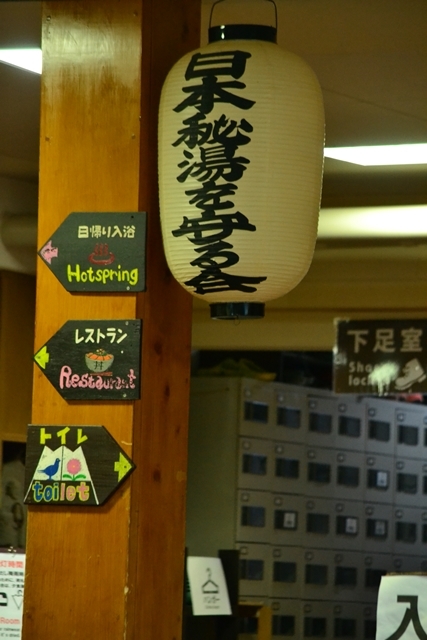 日本秘湯を守る会
日帰り入浴
Hotspring
レストラン
Restaurant
トイレ
toilet
下足室
ハンガー
入